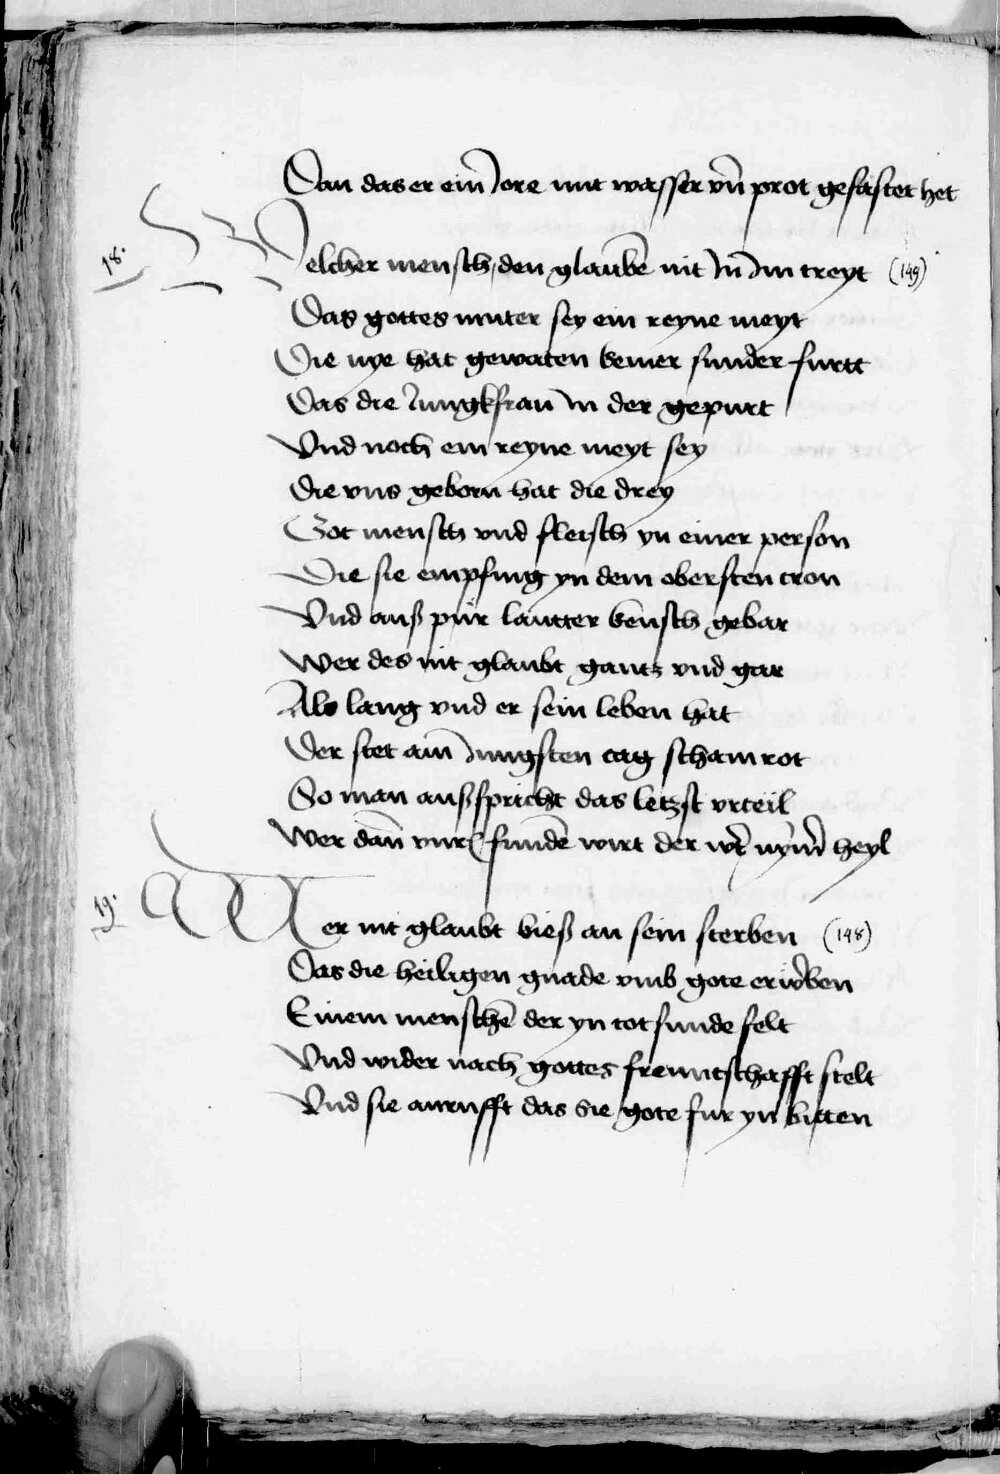 Dan das er ein Jore mit wasser vn̄ prot gefastet het
18.
Welcher mensch den glaubē nit Jn Jm treyt (149)
Das gottes muter sey ein reyne meyt
Die nye hat gewaten keiner sunder furtt
Das die Jungkfrau in der gepurt
Vnd noch ein reyne meyt sey
Die vns geborn hat die drey
Got mensch vnd fleisch yn einer person
Die sie empfing yn dem obersten tron
Vnd auß pur lautter keusch gebar
Wer des nit glaubt gantz vnd gar
Als lang vnd er sein leben hat
Der stet am Jungsten tag schamrot
So man außspricht das letzst vrteil
Wer dan̄ funden wirt der heyl
19.
Wer nit glaubt bieß an sein sterben (148)
Das die heiligen gnade vmb gote erwerben
Einem menschē der yn totsunde felt
Vnd wider nach gottes freuntschafft stelt
Vnd sie anrufft das sie gote fur yn bitten